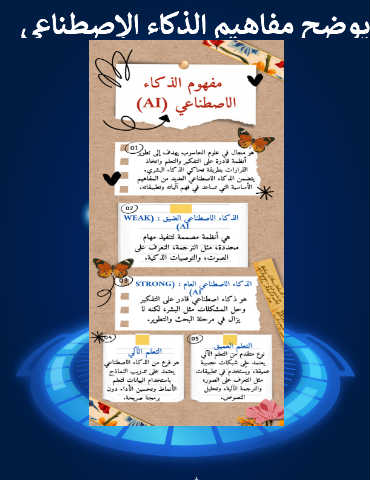 يوضح مفاهيم الذكاء الاصطناعي
مفهوم الذكاء
الاصطناعي (AI)
01
هو مجال في علوم الحاسوب يهدف إلى تطوير
أنظمة قادرة على التفكير والتعلم واتخاذ
القرارات بطريقة تحاكي الذكاء البشري.
يتضمن الذكاء الاصطناعي العديد من المفاهيم
الأساسية التي تساعد في فهم آلياته وتطبيقاته.
02
الذكاء الاصطناعي الضيق : (WEAK
AI)
هي أنظمة مصممة لتنفيذ مهام
محددة، مثل الترجمة، التعرف على
الصوت، والتوصيات الذكية.
03
الذكاء الاصطناعي العام : (STRONG
AI)
هو ذكاء اصطناعي قادر على التفكير
وحل المشكلات مثل البشر، لكنه لا
يزال في مرحلة البحث والتطوير.
05
التعلم العميق
نوع متقدم من التعلم الآلي
يعتمد على شبكات عصبية
عميقة، ويستخدم في تطبيقات
مثل التعرف على الصور،
والترجمة الآلية، وتحليل
النصوص.
04
التعلم الآلي
هو فرع من الذكاء الاصطناعي
يعتمد على تدريب النماذج
باستخدام البيانات لتعلم
الأنماط وتحسين الأداء دون
برمجة صريحة.